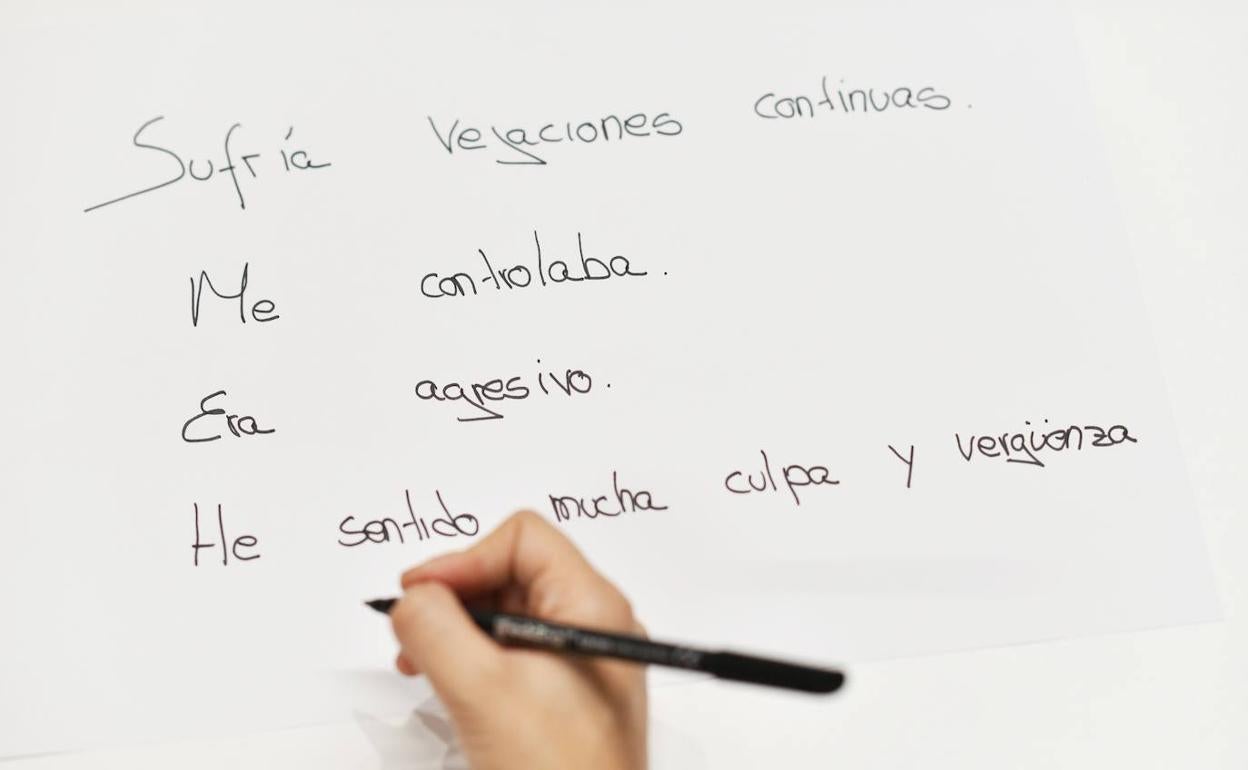 Sufría vejaciones continuas.
Me controlaba.
Era agresivo.
He sentido mucha culpa y vergüenza